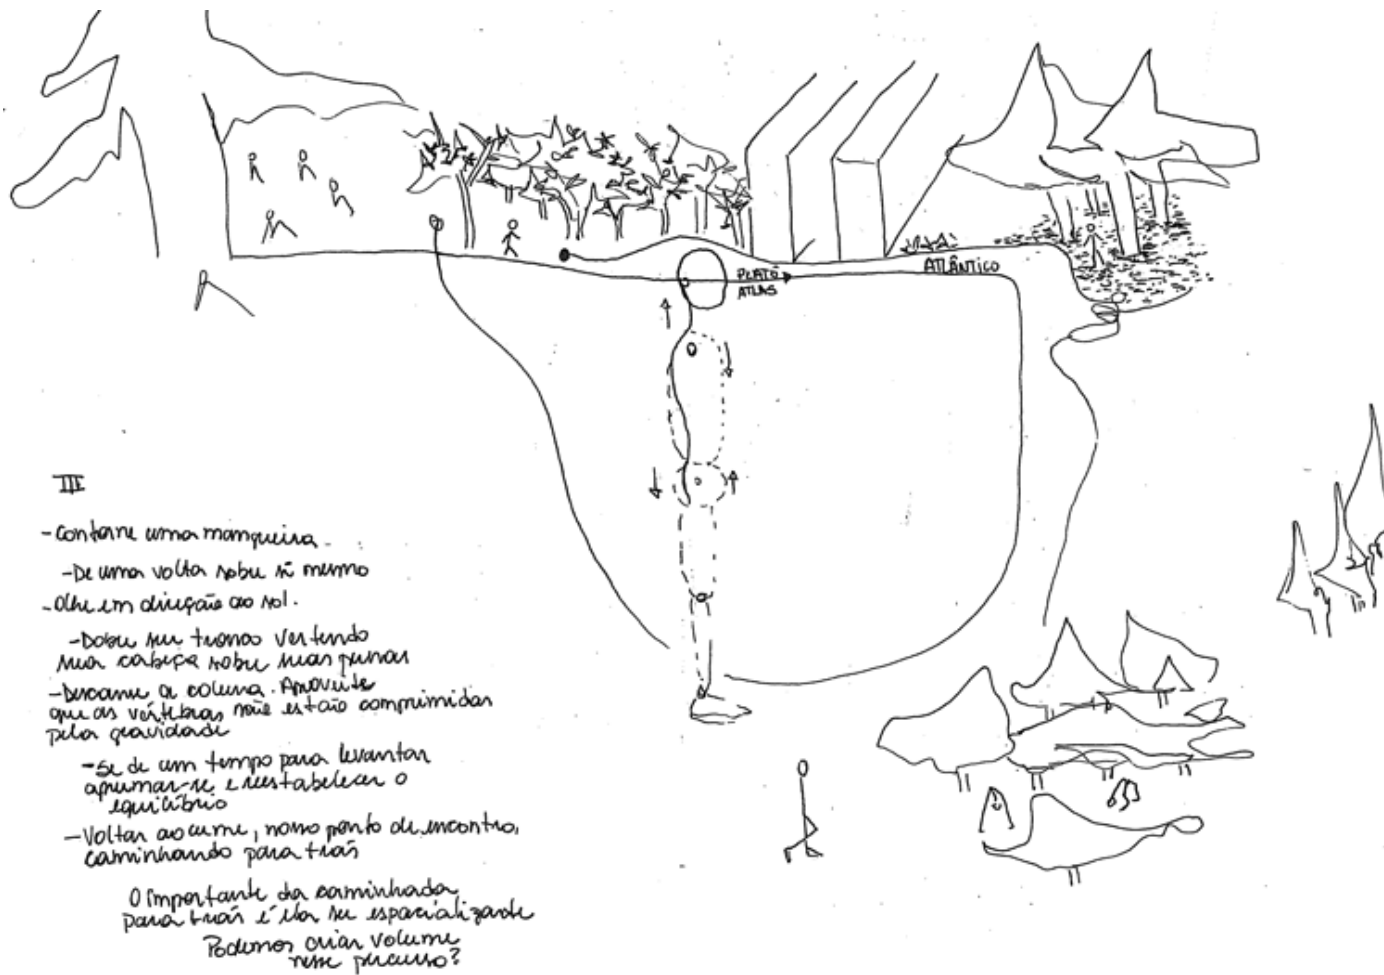 PLATÔ
ATLAS
ATLÂNTICO
III
- Contorne uma mangueira.
- De uma volta sobre si mesmo
- Olhe em direção ao sol.
- Dobre seu tronco vertendo
sua cabeça sobre suas pernas
- Descanse a coluna. Aproveite
que as vértebras não estão comprimidas
pela gravidade
- Se de um tempo para levantar
aprumar-se e reestabelecer o
equilíbrio
- Voltar ao cume, nosso ponto de encontro,
caminhando para trás
O importante da caminhada
para trás é ela ser espacializante
Podemos criar volume
nesse percurso?